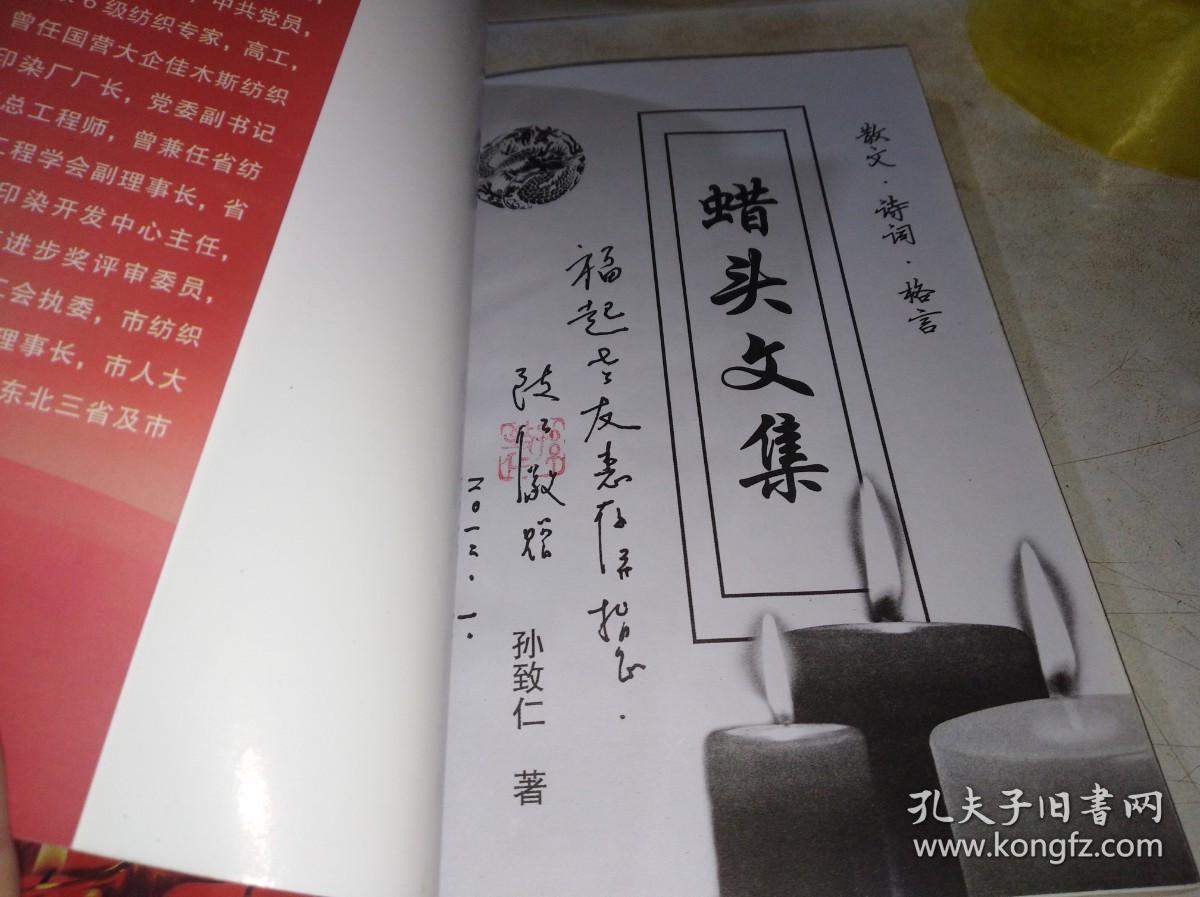 中共党员，
6级纺织专家，高工，
曾任国营大企佳木斯纺织
印染厂厂长，党委副书记
总工程师，曾兼任省纺
工程学会副理事长，省
印染开发中心主任，
进步奖评审委员，
工会执委，市纺织
理事长，市人大
东北三省及市
散文·诗词·格言
蜡头文集
福起老友惠存并指正．
赠
2012.1.
孙致仁 著
孔夫子旧书网
www.kongfz.com